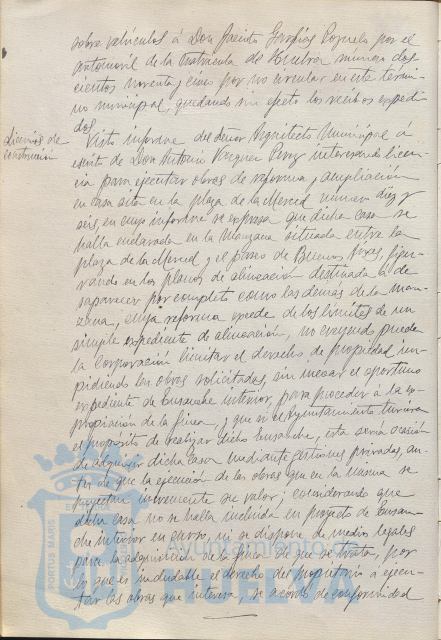 sobre vehículos á Don Jacinto Garfias Pozuelo por el
automóvil de la matrícula de Huelva número dos
cientos noventa y cinco por no circular en este térmi-
no municipal, quedando sin efecto los recibos expedi
dos.
Licencias de
construcción
Visto informe del señor Arquitecto Municipal á
escrito de Don Antonio Vázquez Pérez interesando licen
cia para ejecutar obras de reforma y ampliación
en casa sita en la plaza de la Merced número diez y
seis, en cuyo informe se expresa que dicha casa se
halla enclavada en la manzana situada entre la
plaza de la Merced y el paseo de Buenos Aires, figu-
rando en los planos de alineación destinada á de
saparecer por completo como las demás de la man-
zana, cuya reforma excede de los límites de un
simple expediente de alineación, no creyendo pueda
la Corporación limitar el derecho de propiedad im-
pidiendo las obras solicitadas, sin incoar el oportuno
expediente de Ensanche interior, para proceder á la ex-
propiación de la finca, y que si el Ayuntamiento tuviera
el propósito de realizar dicho ensanche, esta sería ocasión
de adquirir dicha casa mediante gestiones privadas, an-
tes de que la ejecución de las obras que en la misma se
proyectan incremente su valor; considerando que
dicha casa no se halla incluida en proyecto de Ensan-
che interior en curso, ni se dispone de medios legales
para la adquisición de la finca de que se trata, por
lo que es indudable el derecho del propietario á ejecu-
tar las obras que interesa, se acordó de conformidad
Ayuntamiento de
HUELVA
PORTUS MARIS